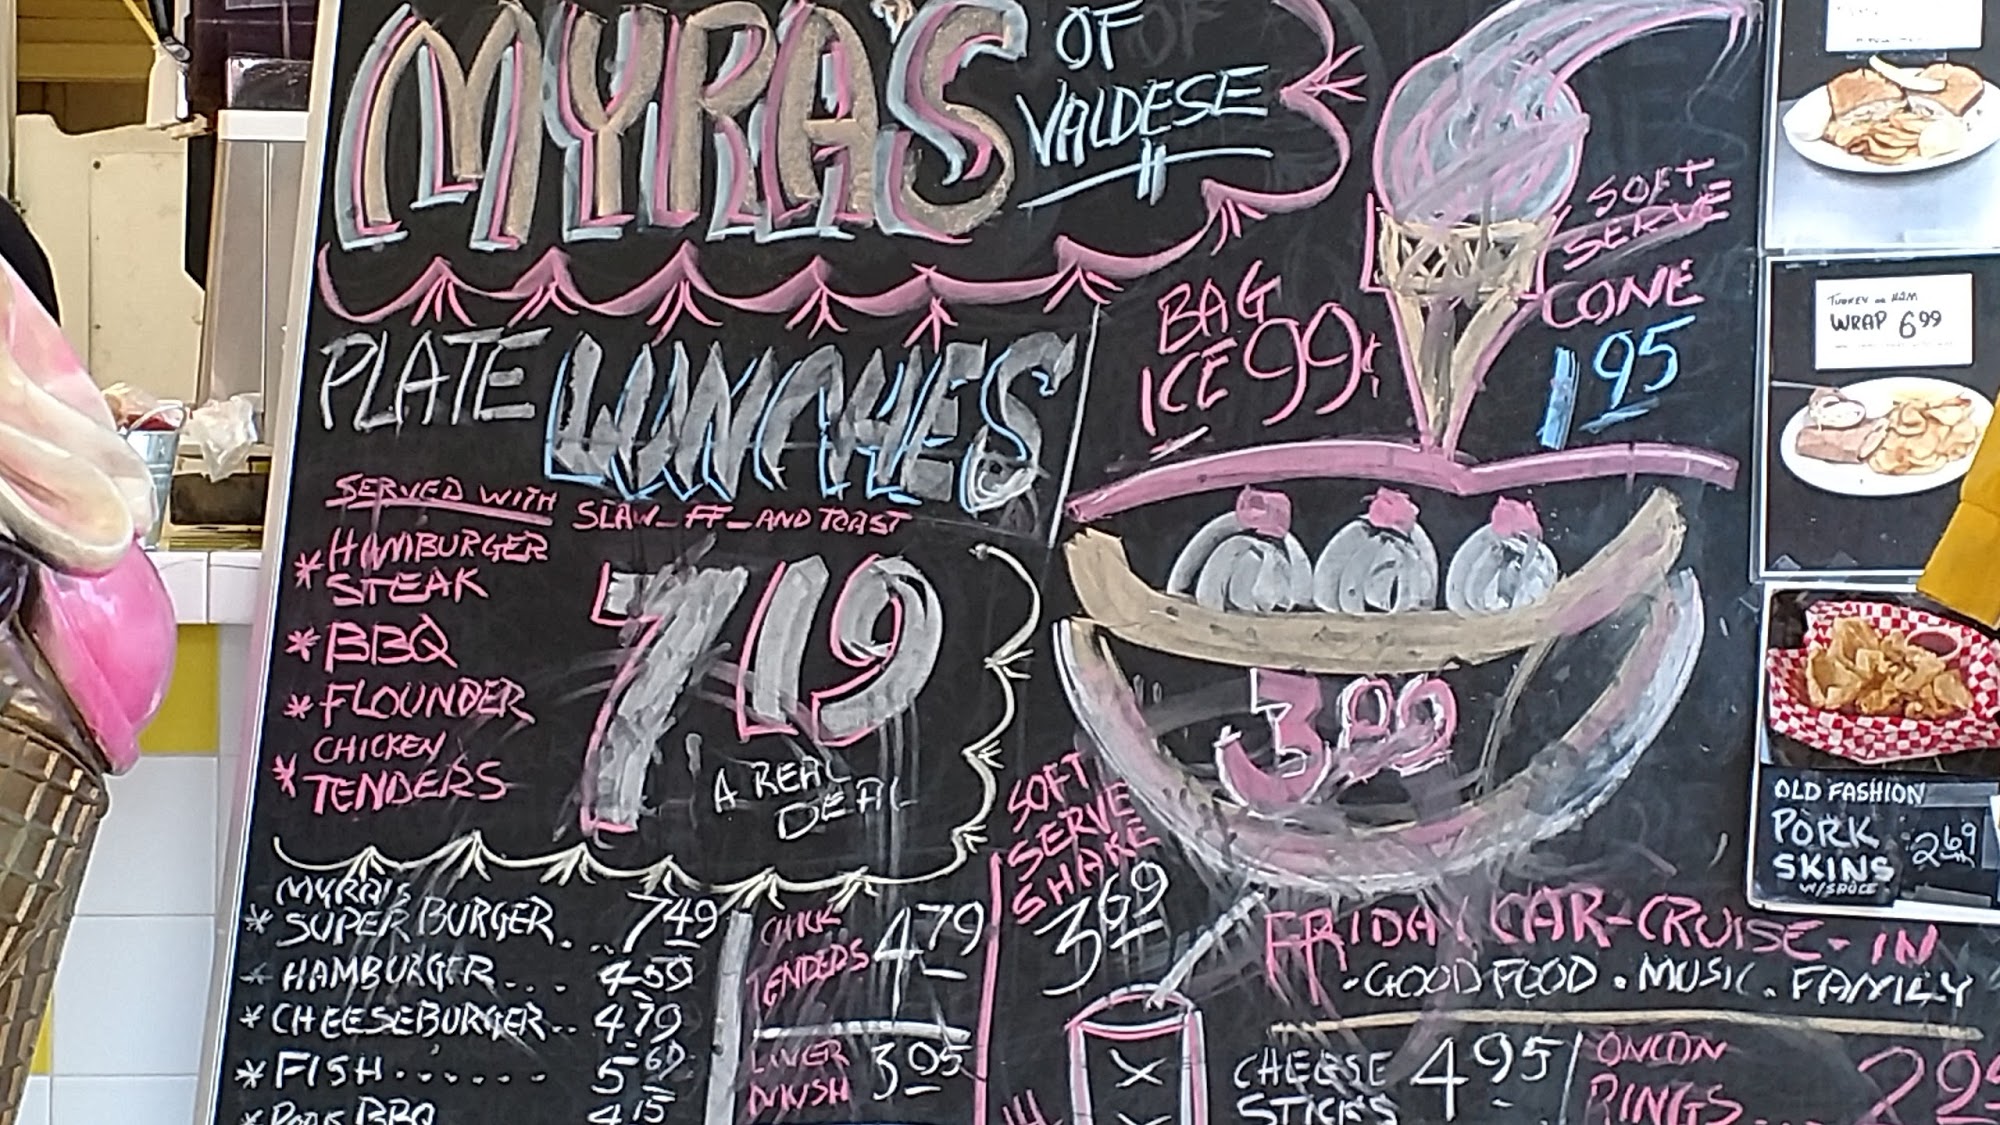 MYRA'S
OF
VALDESE
PLATE LUNCHES
SERVED WITH SLAW_FF_AND TOAST
* HAMBURGER
STEAK
* BBQ
* FLOUNDER
CHICKEN
* TENDERS
7 19
A REAL
DEAL
BAG
ICE 99¢
SOFT
SERVE
CONE
1 95
3.99
SOFT
SERVE
SHAKE
3 69
MYRA'S
* SUPER BURGER... 7 49
* HAMBURGER.... 4 59
* CHEESEBURGER.. 4 79
* FISH....... 5 60
* PORK BBQ 4 15
CHICK
TENDERS 4 79
LIVER
MUSH 3 05
FRIDAY CAR-CRUISE-IN
.GOOD FOOD . MUSIC . FAMILY
CHEESE
STICKS 4 95
ONION
RINGS
TURKEY or HAM
WRAP 6 99
OLD FASHION
PORK
SKINS 2 69
W/SAUCE